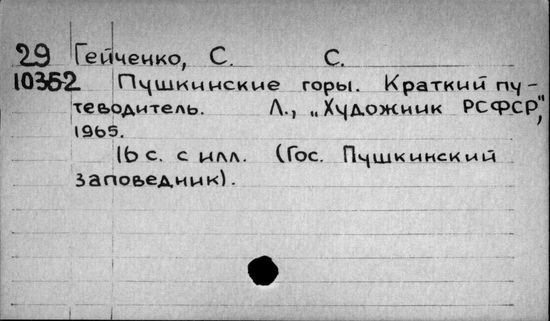 29 Гейченко, С. С.
10352 Пушкинские горы. Краткий пу-
теводитель. Л., „Художник РСФСР",
1965.
16 с. с илл. (Гос. Пушкинский
заповедник).